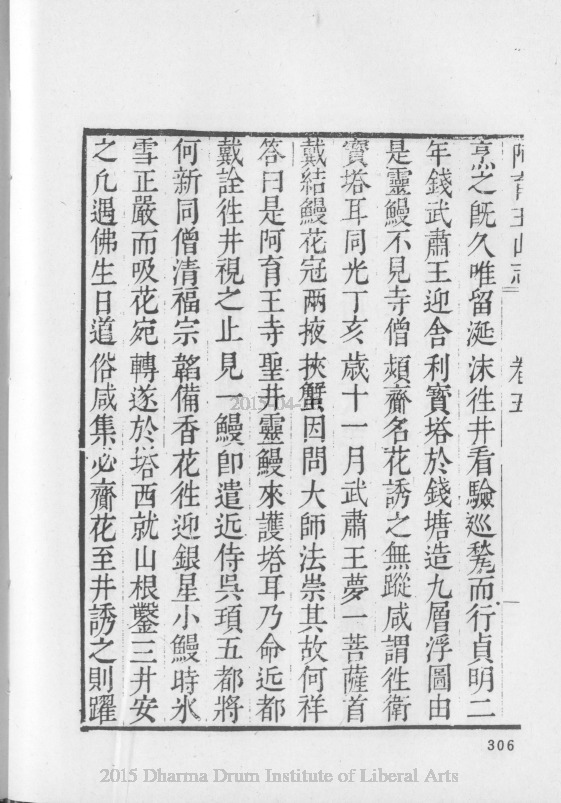 阿育王山志 卷五
烹之旣久唯留涎沫徃井看驗巡𠎝而行貞明二
年錢武肅王迎舍利寶塔於錢塘造九層浮圖由
是靈鰻不見寺僧頻齎名花誘之無蹤咸謂徃衛
寳塔耳同光丁亥歲十一月武肅王夢一菩薩首
戴結鰻花冠兩掖挾蟹因問大師法崇其故何祥
答曰是阿育王寺聖井靈鰻來護塔耳乃命近都
戴詮徃井視之止見一鰻卽遣近侍吳項五都將
何新同僧清福宗韜備香花徃迎銀星小鰻時氷
雪正嚴而吸花宛轉遂於塔西就山根鑿三井安
之凡遇佛生日道俗咸集必齎花至井誘之則躍
306
2015-04-
2015 Dharma Drum Institute of Liberal Arts